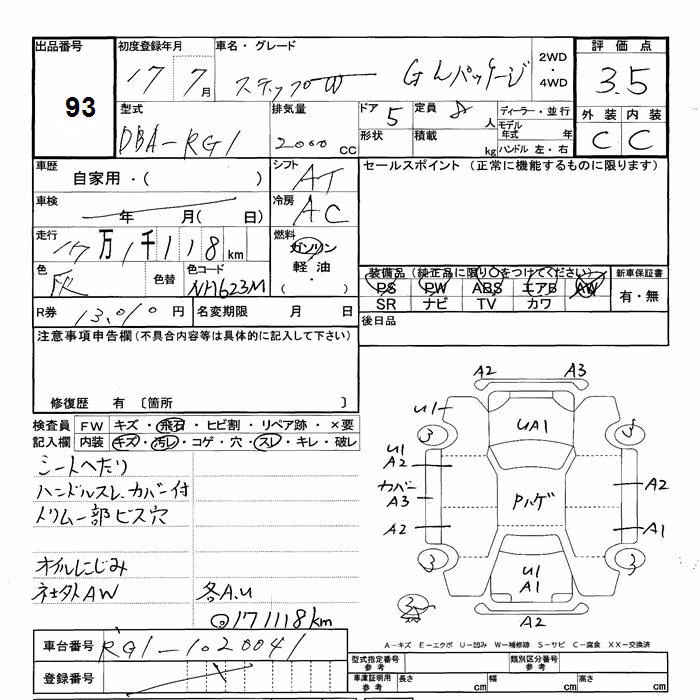 出品番号 初度登録年月 車名・グレード 2WD・4WD 評価点
93 17 7月 ステップW GLパッケージ 3.5
型式 排気量 ドア 5 定員 8人 ディーラー・並行 外装 内装
DBA-RG1 2000 CC 形状 積載 kg モデル年式 年 C C
ハンドル 左・右
車歴 自家用・( ) シフト AT セールスポイント (正常に機能するものに限ります)
車検 年 月( 日) 冷房 AC
走行 17万1千118km 燃料 ガソリン・軽油・( )
色 色替 色コード NH623M
装備品 (純正品に限り○をつけてください) 新車保証書
PS PW ABS エアB AW 有・無
SR ナビ TV カワ
R券 13,010円 名変期限 月 日 後日品
注意事項申告欄 (不具合内容等は具体的に記入して下さい)
修復歴 有 〔箇所 〕
検査員 FW キズ・飛石・ヒビ割・リペア跡・×要
記入欄 内装 キズ・汚レ・コゲ・穴・スレ・キレ・破レ
シートへたり
ハンドルスレ、カバー付
トリム一部ビス穴
オイルにじみ
社外AW 各A.U
◎171118km
車台番号 RG1-1020041
登録番号
A2 A3
U1
3 UA1 3
U1
A2
カバー
A3 Pハゲ A2
A2 A1
3 U1 A1 3
3 A2
A-キズ E-エクボ U-凹み W-補修跡 S-サビ C-腐食 XX-交換済
型式指定番号 参考 類別区分番号 参考
車庫証明用 参考 長さ cm 幅 cm 高さ cm